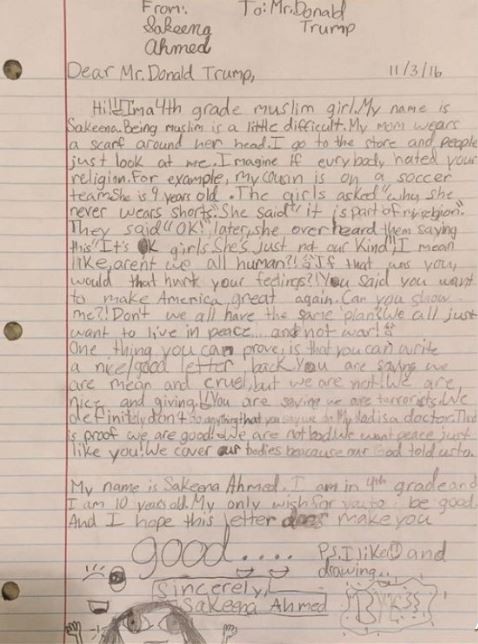 From: To: Mr. Donald
Sakeena Trump
Ahmed
Dear Mr. Donald Trump, 11/3/16
Hi!! I'm a 4th grade muslim girl. My name is
Sakeena. Being muslim is a little difficult. My mom wears
a scarf around her head. I go to the store and people
just look at me. Imagine if eurybody hated your
religion. For example, my cousin is on a soccer
team. She is 9 years old. The girls asked "why she
never wears shorts". She said "it is part of my religion".
They said "OK!" later, she over heard them saying
this "It's OK girls She's just not our Kind", I mean
like, aren't we all human?! If that was you,
would that hurt your feelings?! You said you want
to make America great again. Can you show
me?! Don't we all have the same plan? We all just
want to live in peace... and not war!
One thing you can prove, is that you can write
a nice/good letter back. You are saying we
are mean and cruel, but we are not! We are,
nice and giving!! You are saying we are terrorists. We
definitely don't do anything that you say we do. My dad is a doctor. That
is proof we are good! We are not bad. We want peace just
like you! We cover our bodies beacause our God told us to.
My name is Sakeena Ahmed. I am in 4th grade and
I am 10 years old. My only wish for you to be good
And I hope this letter does make you
good.... P.S. I like and
drawing..
Sincerely,
Sakeena Ahmed